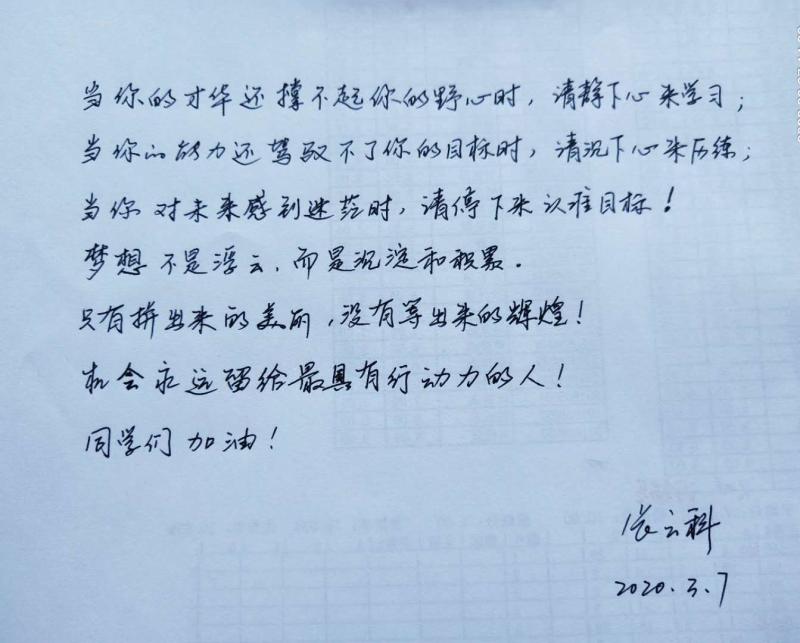 当你的才华还撑不起你的野心时，请静下心来学习；
当你的能力还驾驭不了你的目标时，请沉下心来历练；
当你对未来感到迷茫时，请停下来认准目标！
梦想不是浮云，而是沉淀和积累．
只有拼出来的美丽，没有等出来的辉煌！
机会永远留给最具有行动力的人！
同学们加油！
张云科
2020.3.7